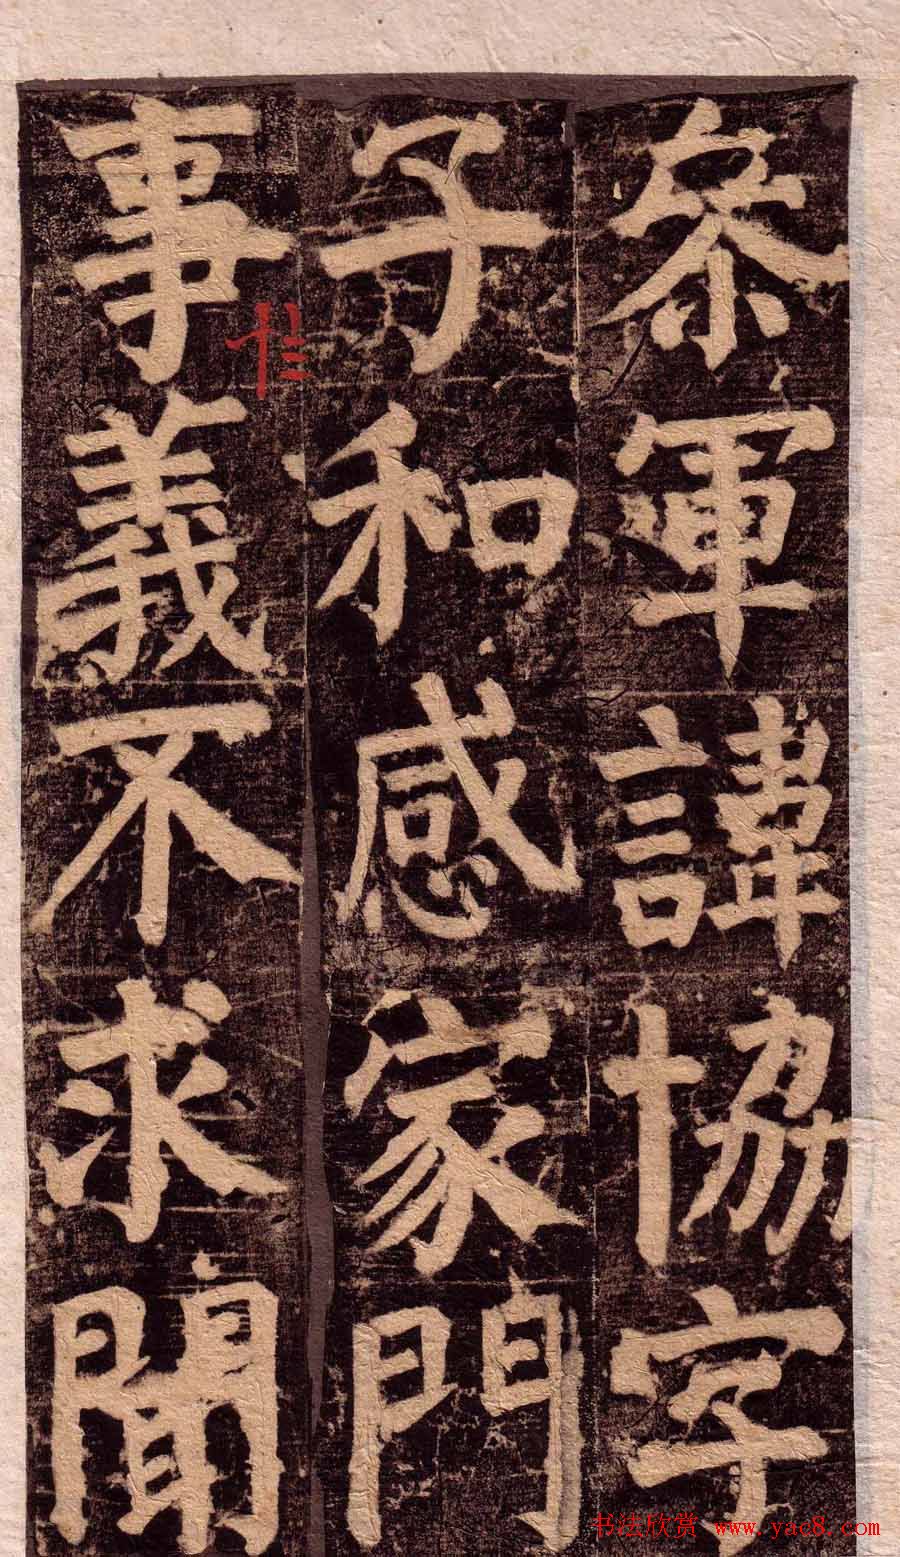 叅軍諱協字
子和感家門
事義不求聞
书法欣赏 www.yac8.com